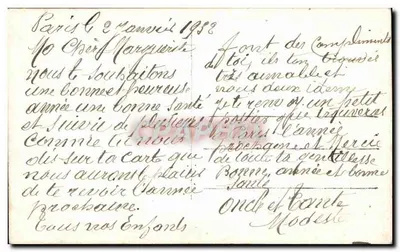 Paris le 2 Janvier 1952
Ma Chère Marguerite
nous te souhaitons
une bonne et heureuse
année une bonne Santé
et Suivie de plusieurs
Comme tu nous
dis sur la carte que
nous aurons plaisir
de te revoir l'année
prochaine.
tous nos Enfants
font des Compliments
de toi, ils t'on trouvée
très aimable et
nous deux idem
je te remet un petit
que tu
l'année
et Mercie
de toute ta gentillesse
Bonne année et bonne
Santé
Oncle et Tante
Modeste